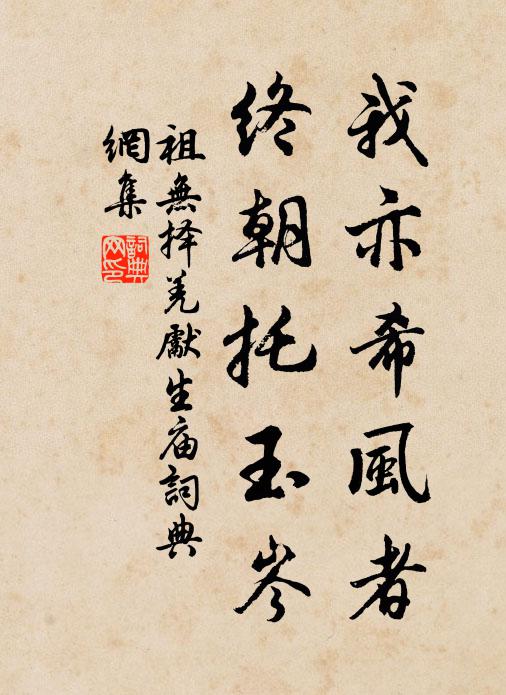 我亦希風者
終朝托玉岑
祖無择羌獻生庙詞典
網集
詞典网印